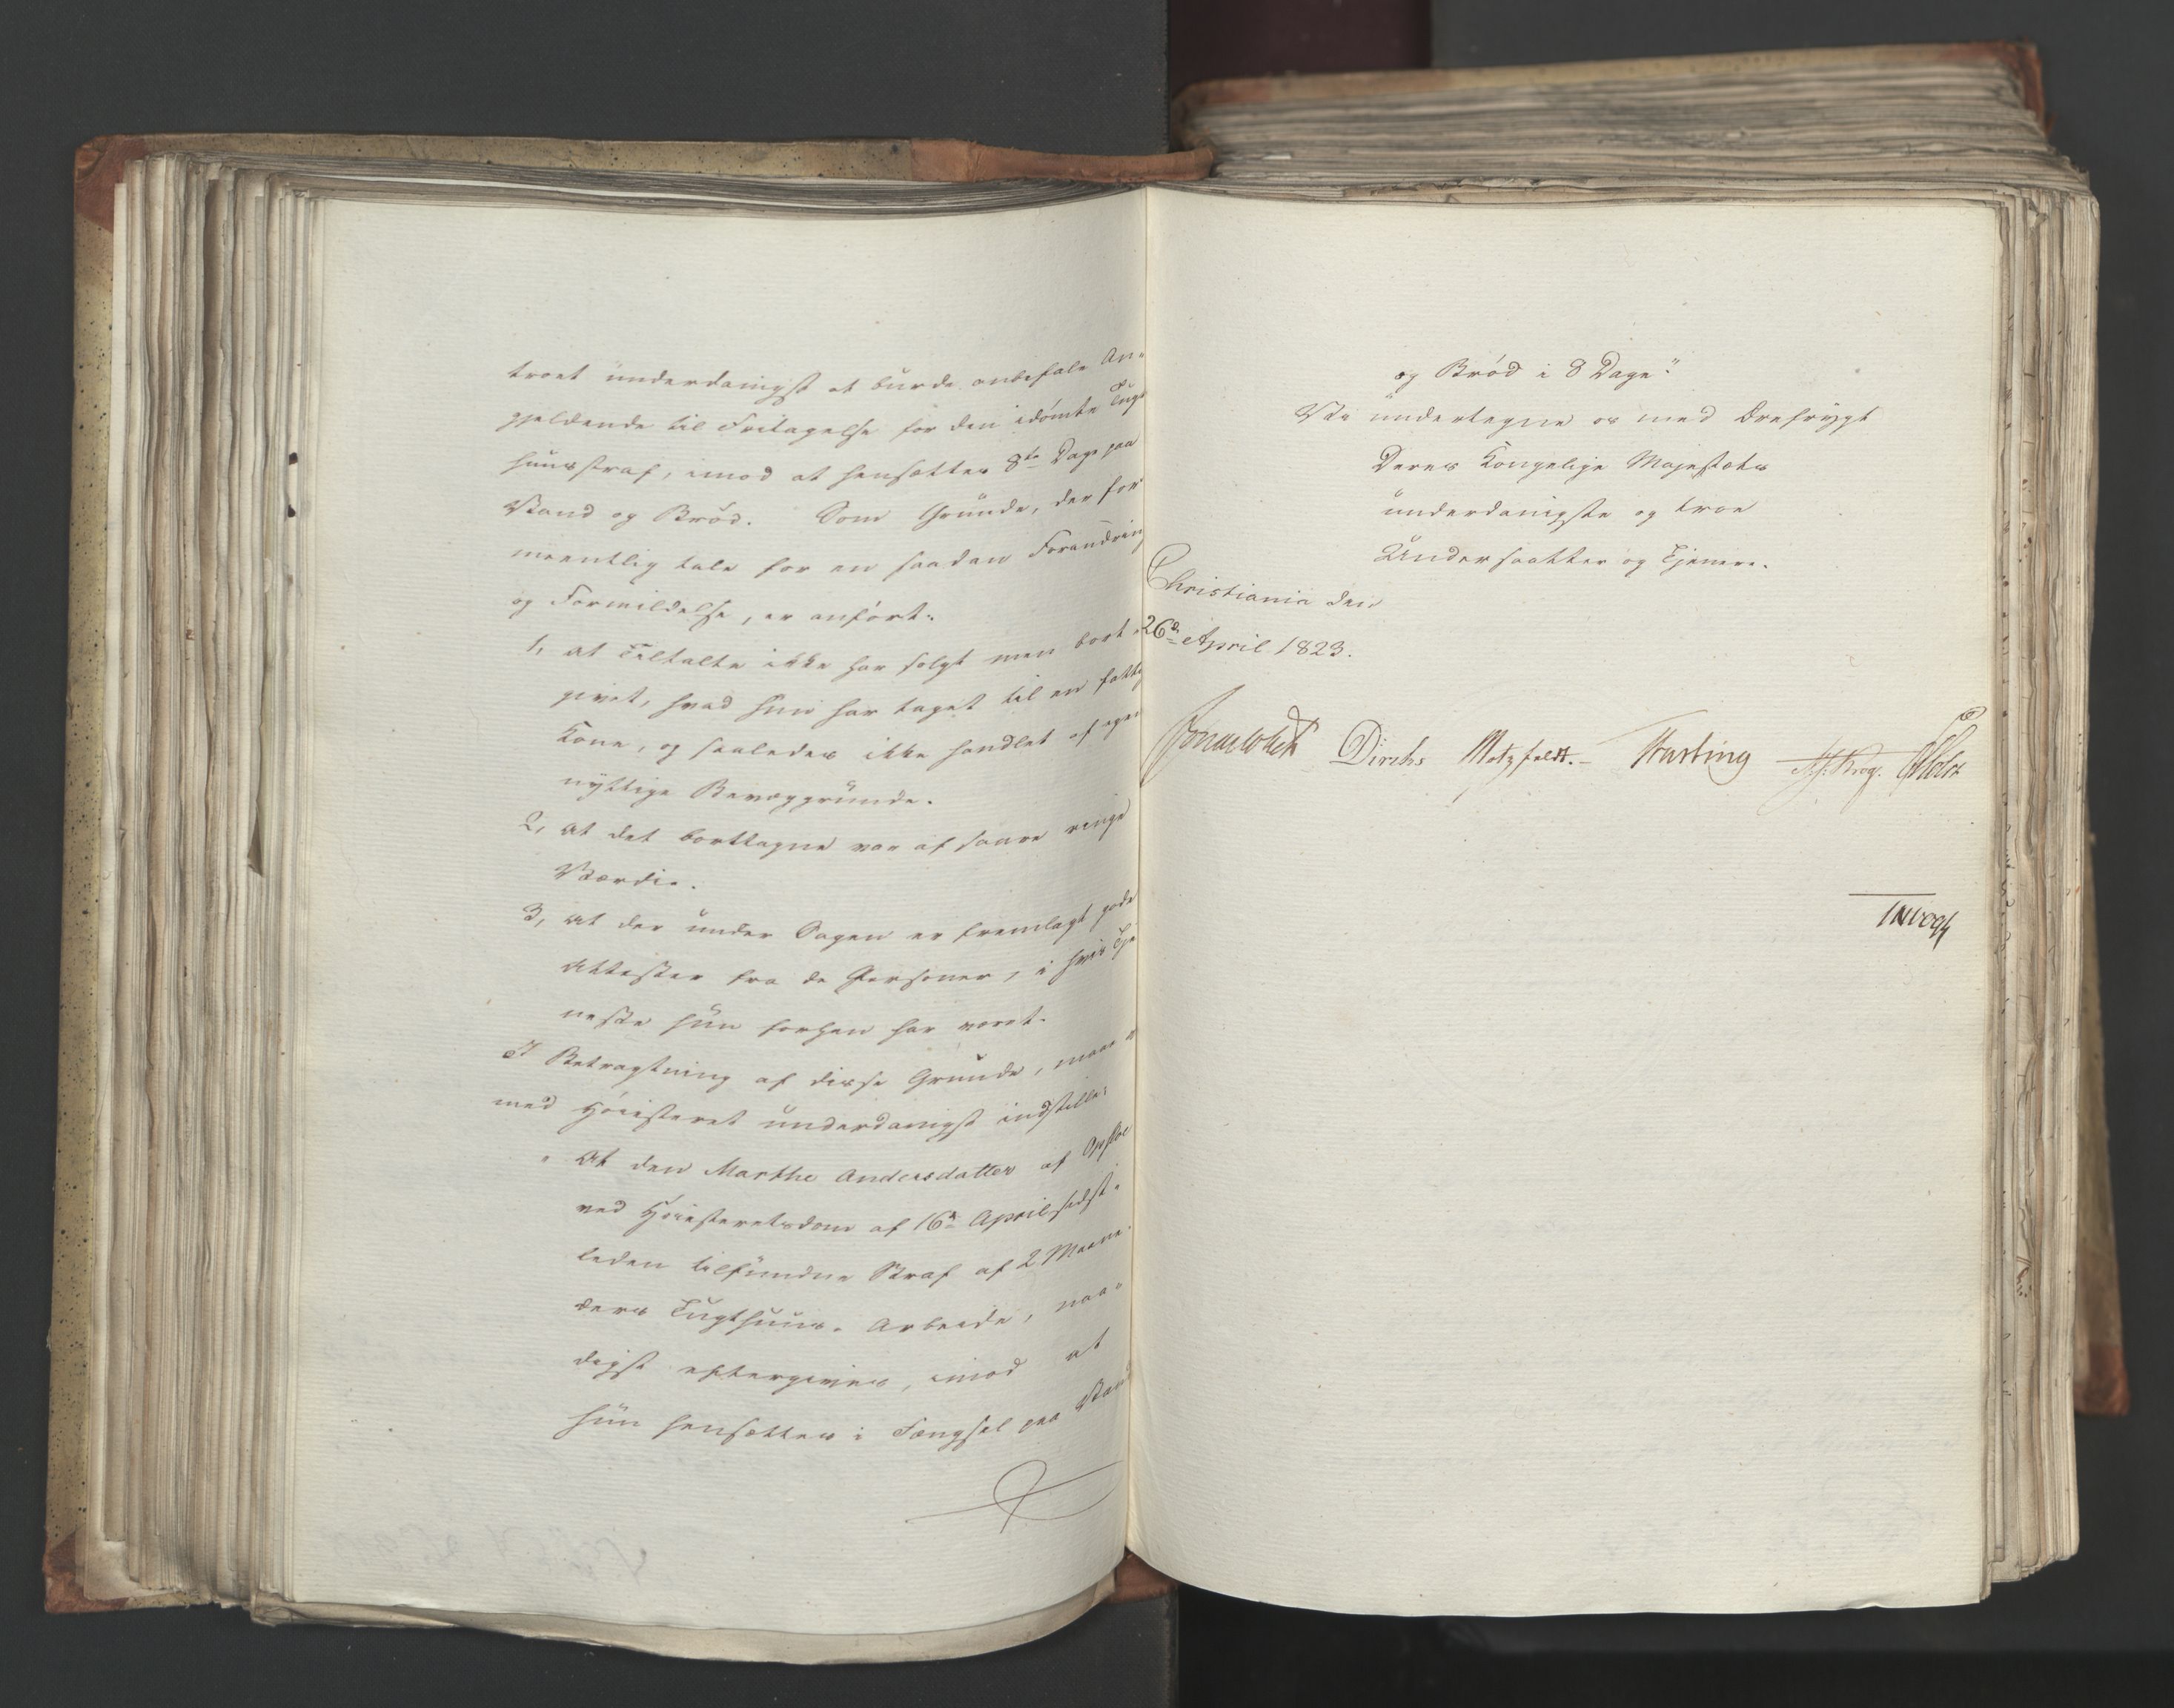 troet underdanigst at burde anbefale An-
gjeldende til Fritagelse for den idømte Tugt
huusstraf, imod at hensættes 8te Dage paa
Vand og Brød. Som Grunde, der for
meentlig tale for en saadan Forandring
og Formildelse, er anført:
1, at Tiltalte ikke har solgt men bort-
givet, hvad hun har taget til en fattig
Kone, og saaledes ikke handlet af egen
nyttige Bevæggrunde.
2, at det borttagne var af saare ringe
Værdie.
3, at der under Sagen er fremlagt gode
Attester fra de Personer, i hvis Tje
neste hun forhen har været.
I Betragtning af disse Grunde, maae vi
med Høiesteret underdanigst indstille:
" At den Marthe Andersdatter af Opsloe
ved Høiesteretsdom af 16de April sidst-
leden tilfundne Straf af 2 Maane
ders Tugthuus-Arbeide, naa-
digst eftergives, imod at
hun hensættes i Fængsel paa Vand
og Brød i 8 Dage"
Vi undertegne os med Ærefrygt
Deres Kongelige Majestæts
underdanigste og troe
Undersaatter og Tjenere.
Christiania den
26de April 1823.
Jonas Collett Diriks Motzfeldt. Fasting A. J. Krog. P Holst
JHVogt